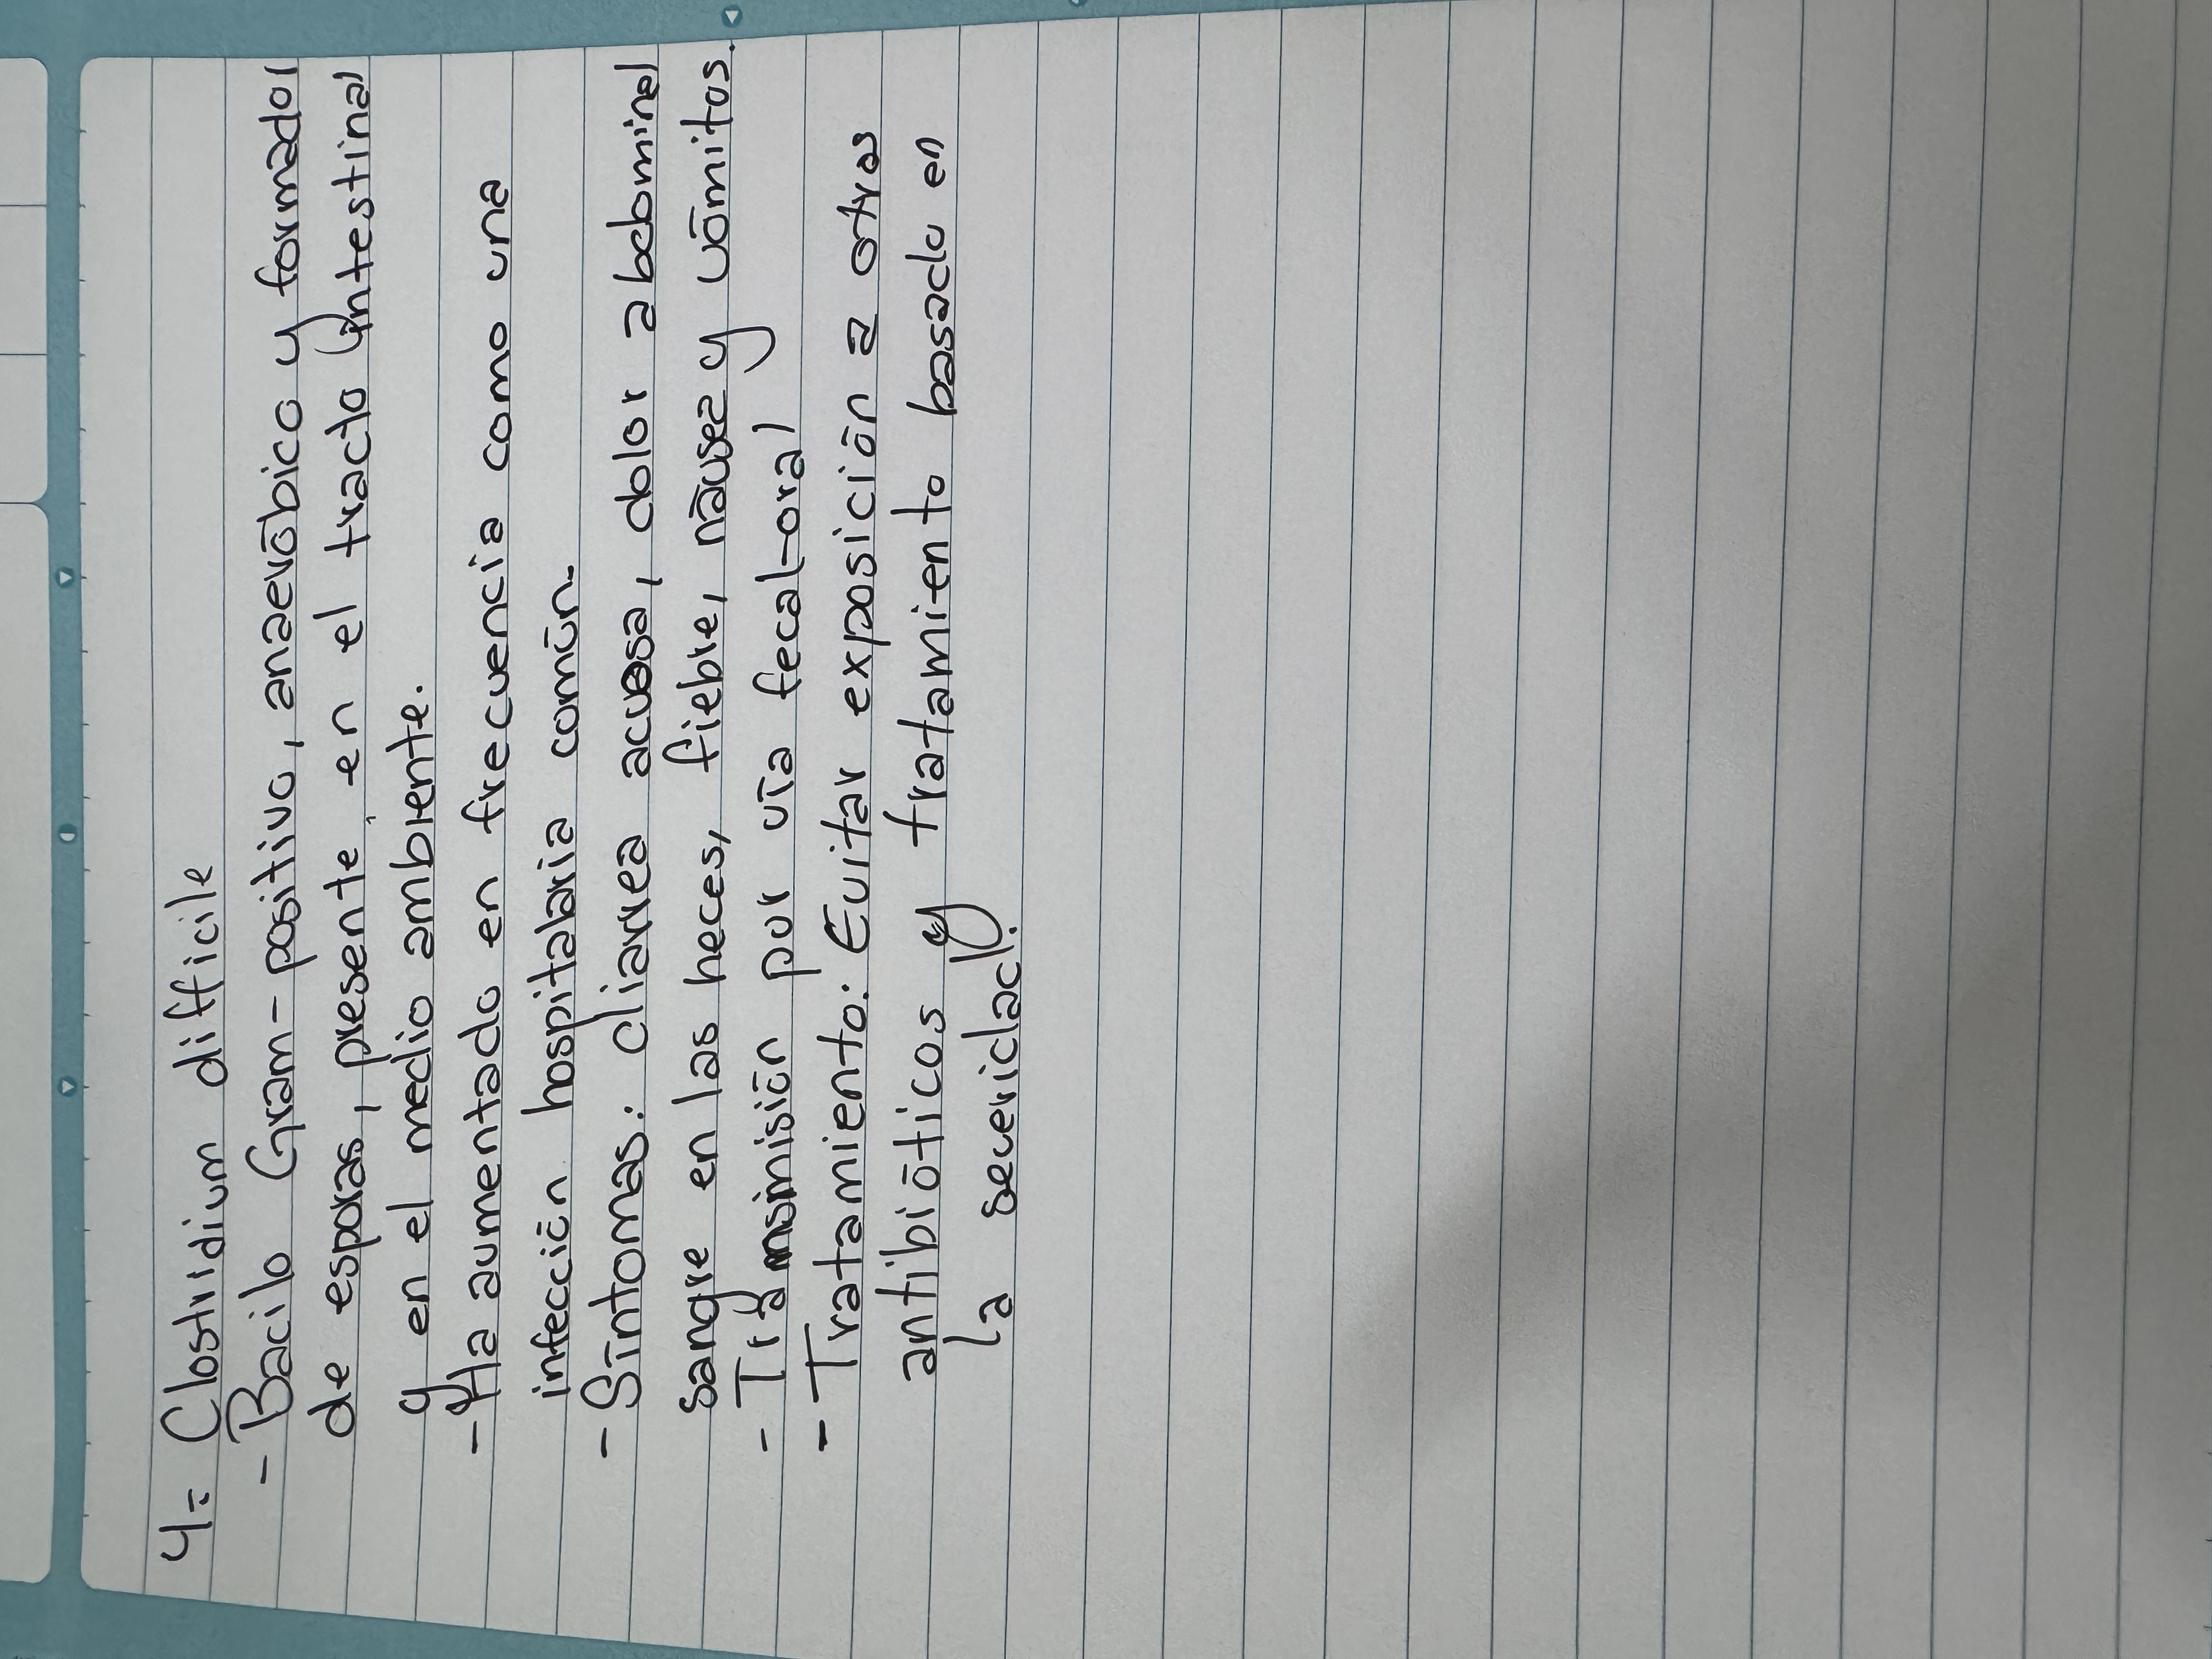 4= Clostridium difficile
- Bacilo Gram-positivo, anaeróbico y formador
de esporas, presente en el tracto intestinal
y en el medio ambiente.
- Ha aumentado en frecuencia como una
infección hospitalaria común.
- Síntomas: diarrea acuosa, dolor abdominal
sangre en las heces, fiebre, náusea y vómitos.
- Transmisión por vía fecal-oral
- Tratamiento: Evitar exposición a otros
antibióticos y tratamiento basado en
la severidad.